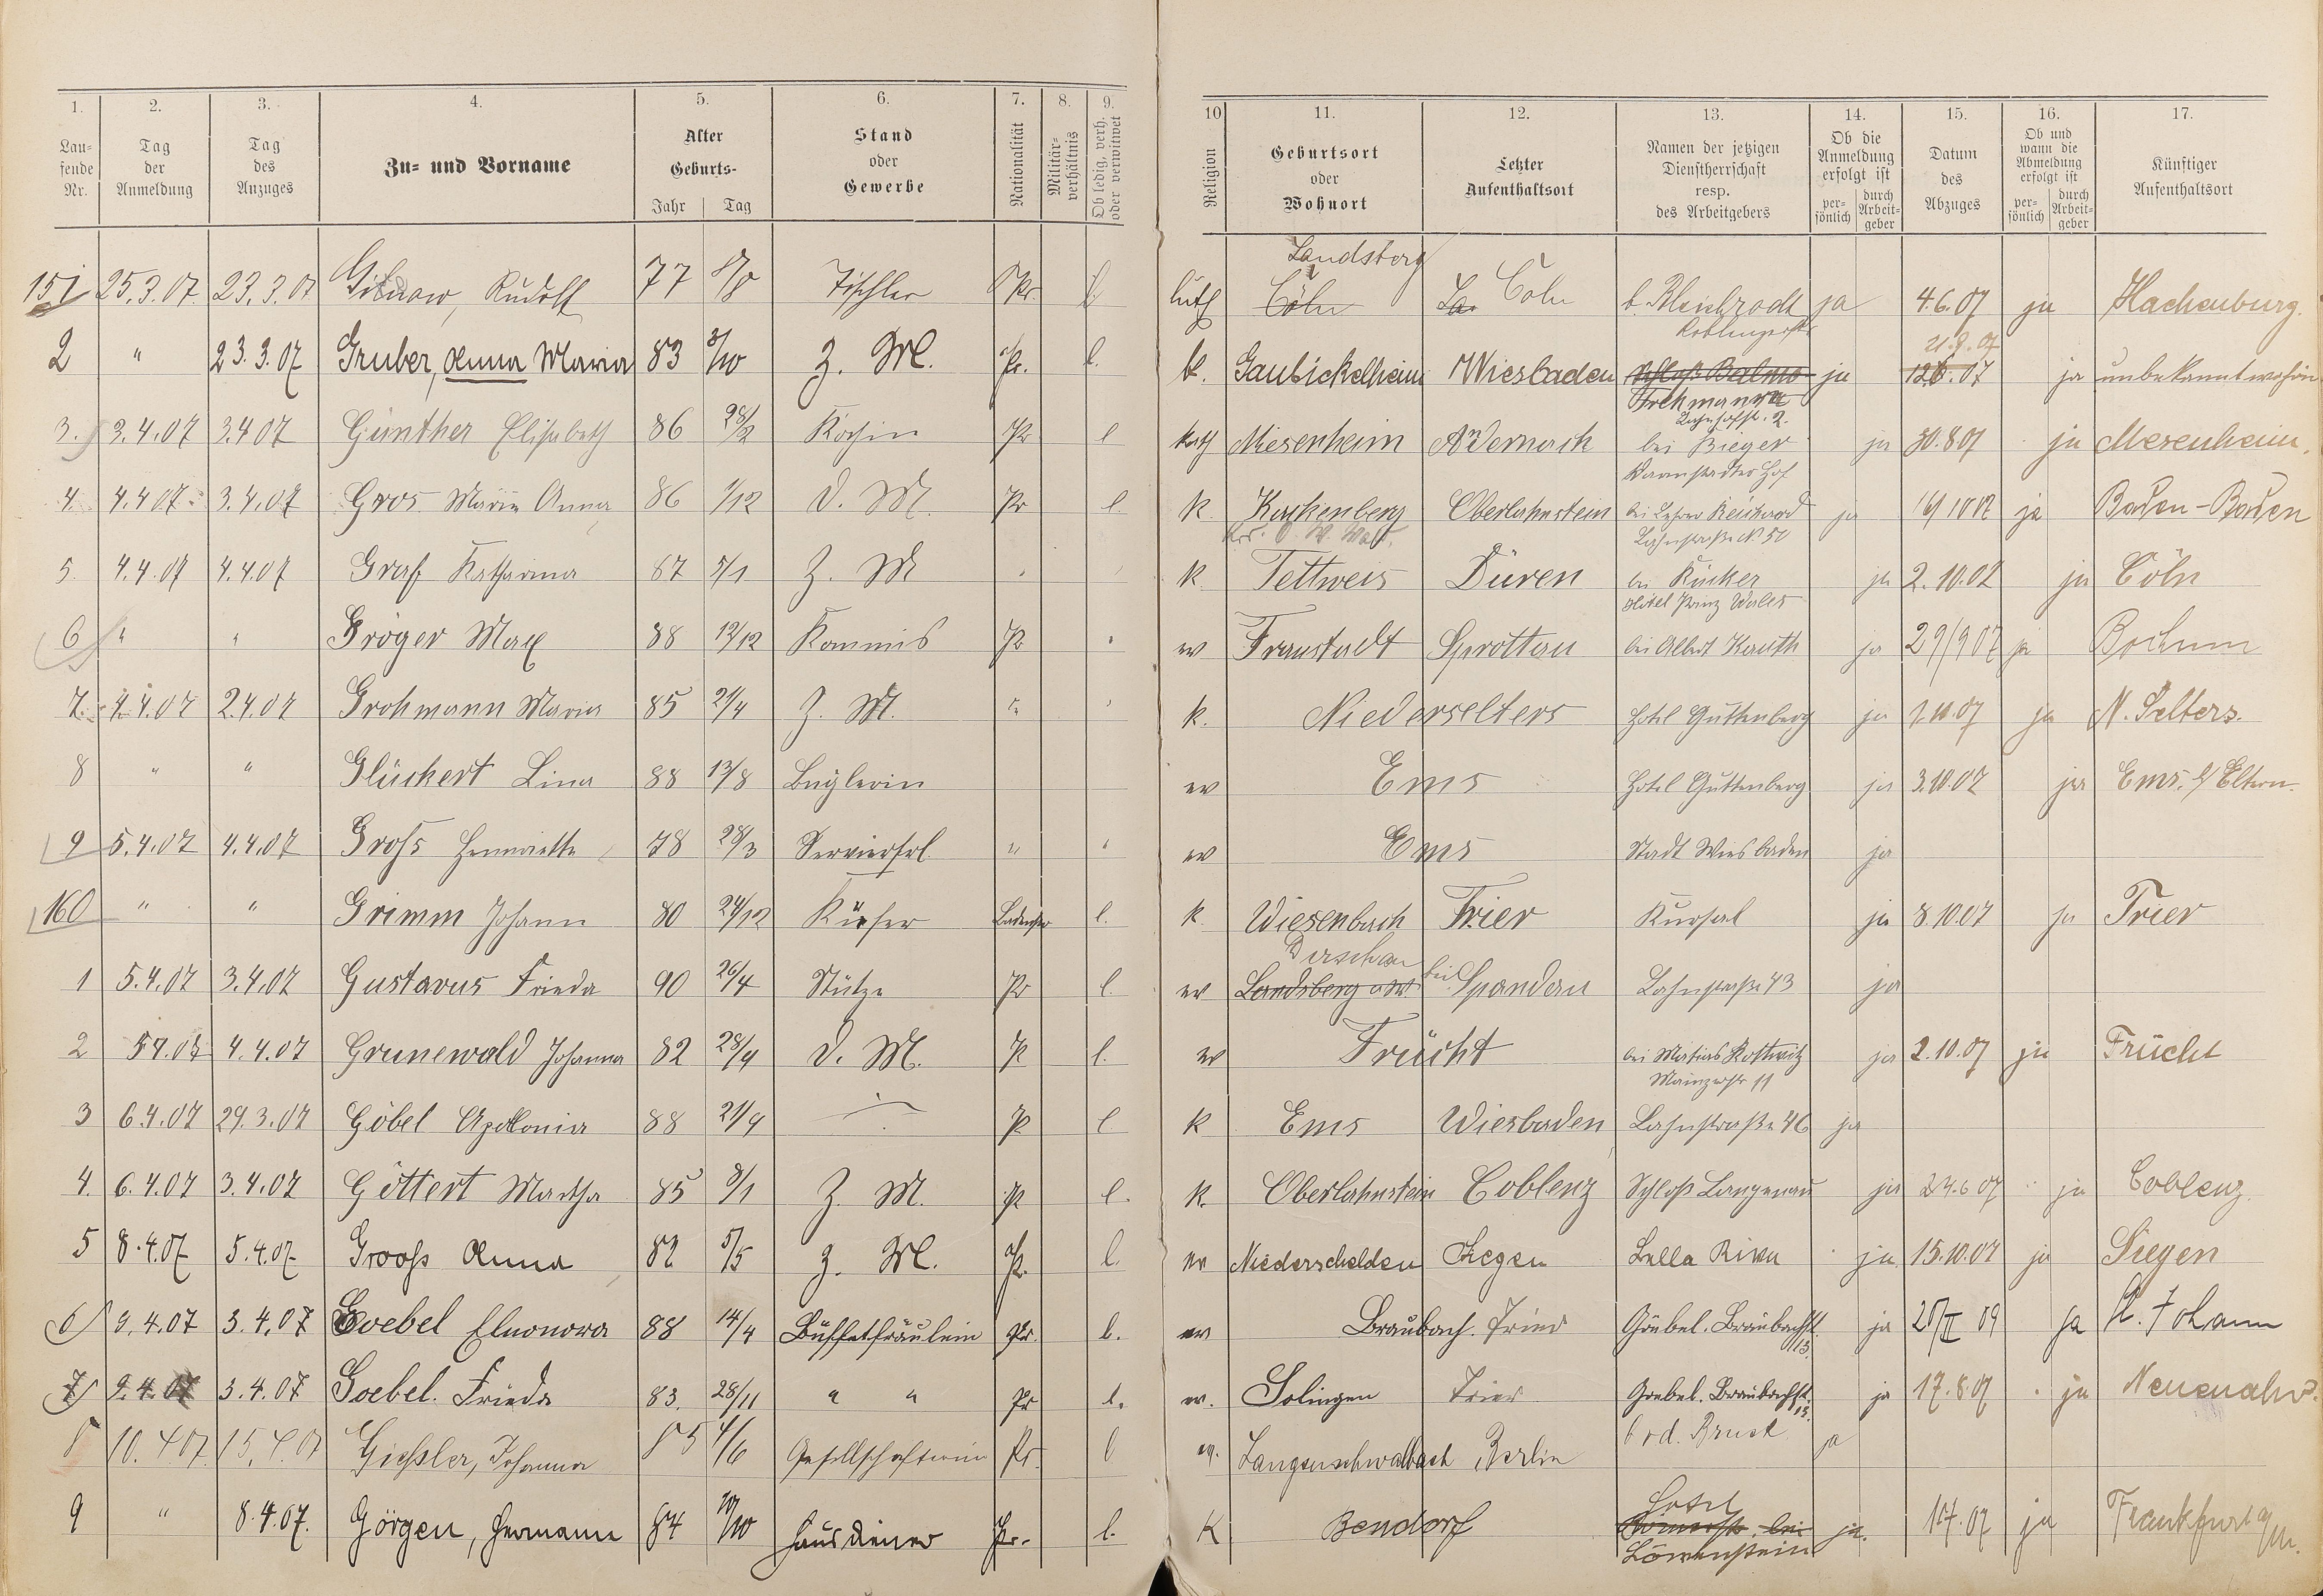 1. 2. 3. 4. 5. 6. 7. 8. 9. 10 11. 12. 13. 14. 15. 16. 17.
Laufende Nr. Tag der Anmeldung Tag des Anzuges Zu- und Vorname Alter Geburts- Jahr Tag Stand oder Gewerbe Nationalität Militärverhältnis Ob ledig, verh. oder verwitwet Religion Geburtsort oder Wohnort Letzter Aufenthaltsort Namen der jetzigen Dienstherrschaft resp. des Arbeitgebers Ob die Anmeldung erfolgt ist persönlich durch Arbeitgeber Datum des Abzuges Ob und wann die Abmeldung erfolgt ist persönlich durch Arbeitgeber Künftiger Aufenthaltsort
Landsberg
151 25.3.07 23.3.07 Rudolf 77 Tischler Pr. l luth Cöln La. Cöln ja 4.6.07 ja Hachenburg.
21.9.07
2 " 23.3.07 Gruber, Anna Maria 83 3/10 Z. M. Pr. l. k. Gaubickelheim Wiesbaden Schloß Balmo ja ja unbekannt wohin
3. 3.4.07 3.4.07 Günther Elisabeth 86 28/2 Köchin Pr l kath Miesenheim Andernach bei Bieger ja 30.8.07 ja Mesenheim.
Darmstädter Hof
4. 4.4.07 3.4.07 Gros Marie Anna 86 1/12 D. M. Pr l. k. Oberlahnstein bei Lehrer ja ja Baden-Baden
Lahnstraße No 50
5. 4.4.07 4.4.07 Graf Katharina 87 5/1 Z. M " k. Tettweis Düren bei Rücker ja 2.10.07 ja Cöln
Hotel Prinz Wales
6 " " Gröger Max 88 12/12 Kommis Pr " ev Fraustadt Sprottau bei Albert Kauth ja 29/9 07 ja Bochum
7. 4.4.07 2.4.07 Grohmann Maria 85 21/4 Z. M. " k. Niederselters Hotel Guttenberg ja 1.10.07 ja N. Selters.
8 " " Glückert Lina 88 13/8 Büglerin ev Ems Hotel Guttenberg ja 3.10.07 ja Ems. b/ Eltern.
9 5.4.07 4.4.07 Groß Henriette 78 28/3 Servierfrl. " " ev Ems Stadt Wiesbaden ja
160 " " Grimm Johann 80 24/12 Küfer l. k. Wiesenbach Trier Kursaal ja 8.10.07 ja Trier
Dirschau
1 5.4.07 3.4.07 Gustavus Frieda 90 26/4 Stütze Pr l. ev Landsberg a/W bei Spandau Lahnstraße 43 ja
2 5.4.07 4.4.07 Grunewald Johanna 82 28/4 D. M. P l. ev Frücht bei ja 2.10.07 ja Frücht
Mainzerstr 11
3 6.4.07 29.3.07 Göbel Apollonia 88 21/9 P l k Ems Wiesbaden Lahnstraße 46 ja
4. 6.4.07 3.4.07 Göttert Martha 85 9/1 Z. M. P l. k. Oberlahnstein Coblenz Schloß Langenau ja 24.6.07 ja Coblenz
5 8.4.07 5.4.07 Grooß Anna 82 5/5 Z. M. Pr. l. ev Niederschelden Siegen Bella Riva ja 15.10.07 ja Siegen
6 9.4.07 3.4.07 Goebel Eleonora 88 14/4 Büffetfräulein Pr. l. ev Braubach. Trier Goebel. Braubachstr. 13. ja 20/II 09 ja St. Johann
7 9.4.07 3.4.07 Goebel. Frieda 83. 28/11 " " Pr l. ev. Solingen Trier Goebel. Braubachstr. 13. ja 17.8.07 ja Neuenahr.
8 10.4.07. 15.4.07 Gießler, Johanna 85 4/6 Gesellschafterin Pr. l ev. Langenschwalbach Berlin ja
9 " 8.4.07. Görgen, Hermann 84 Hausdiener Pr. l. K Bendorf Hotel ja. ja Frankfurt a/M.
Löwenstein